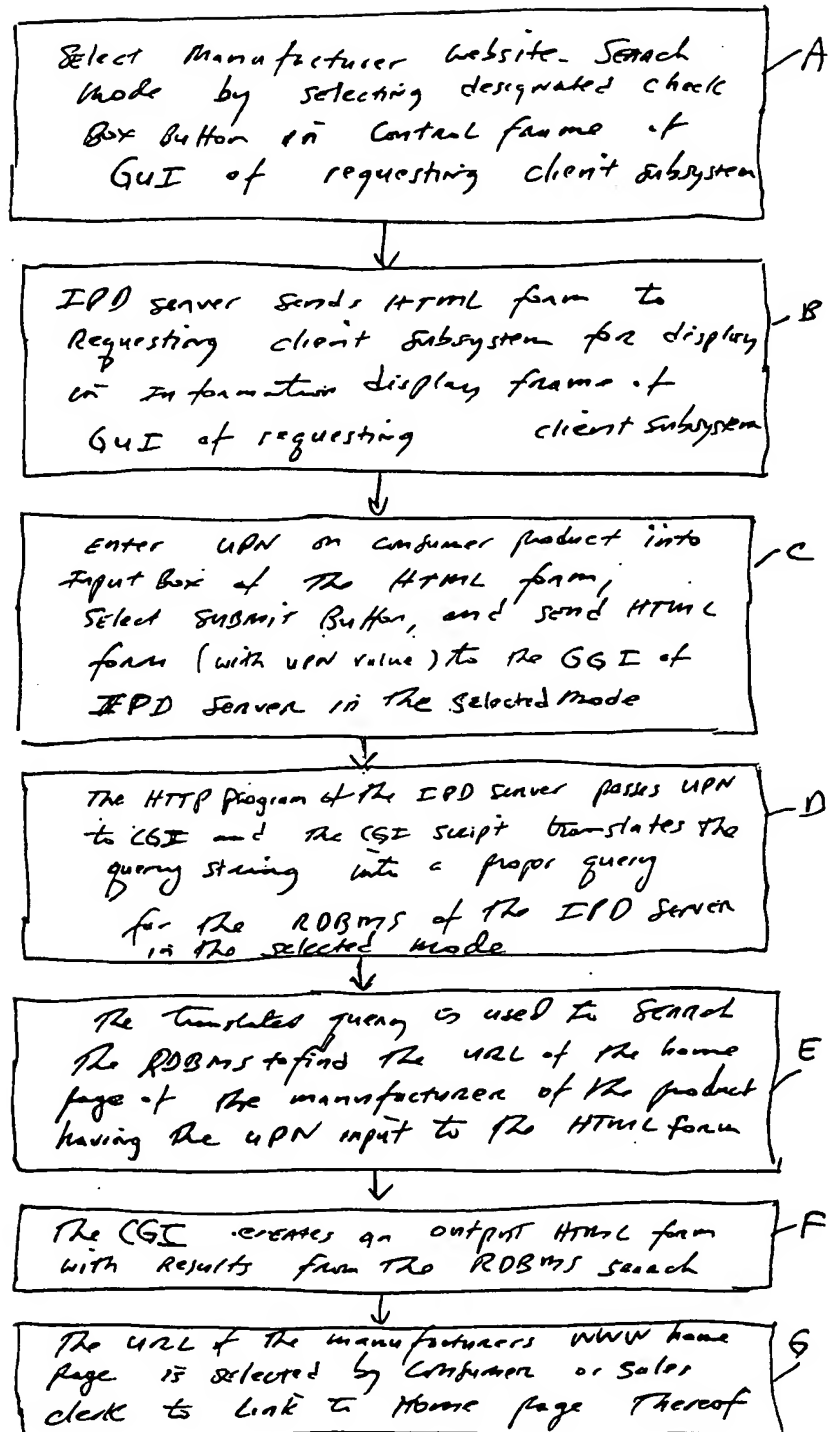 Select Manufacturer Website Search
Mode by selecting designated check
Box Button in Control frame of
GUI of requesting client subsystem
A
IPD server sends HTML form to
Requesting client subsystem for display
in Information display frame of
GUI of requesting client subsystem
B
Enter UPN on consumer product into
Input Box of the HTML form,
Select Submit Button, and send HTML
form (with UPN value) to the GGI of
IPD Server in the selected mode
C
The HTTP program of the IPD server passes UPN
to CGI and the CGI script translates the
query string into a proper query
for the RDBMS of the IPD Server
in the selected mode
D
The translated query is used to Search
the RDBMS to find the URL of the home
page of the manufacturer of the product
having the UPN input to the HTML form
E
The CGI creates an output HTML form
with Results from the RDBMS search
F
The URL of the manufacturers WWW home
Page is selected by Consumer or Sales
clerk to Link to Home page Thereof
G